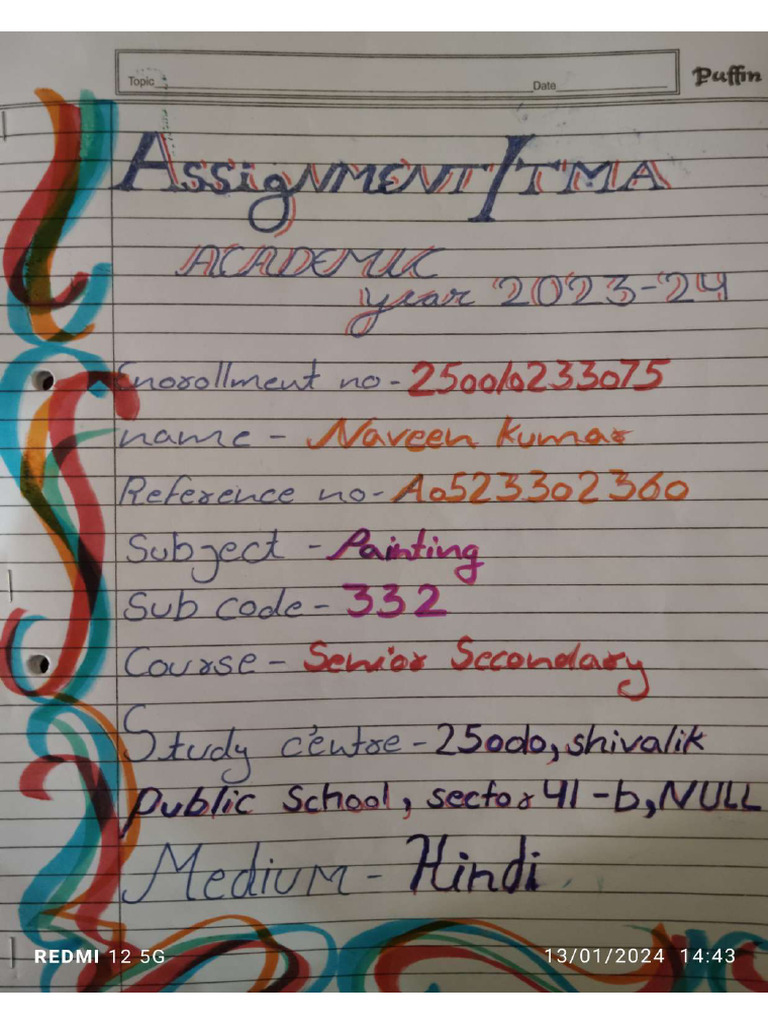 Topic Date Puffin
Assignment/TMA
ACADEMIC
year 2023-24
Enorollment no - 250010233075
name - Naveen Kumar
Reference no - A0523302360
Subject - Painting
Sub code - 332
Course - Senior Secondary
Study centre - 25000, shivalik
Public School, sector 41-b, NULL
Medium - Hindi
REDMI 12 5G 13/01/2024 14:43